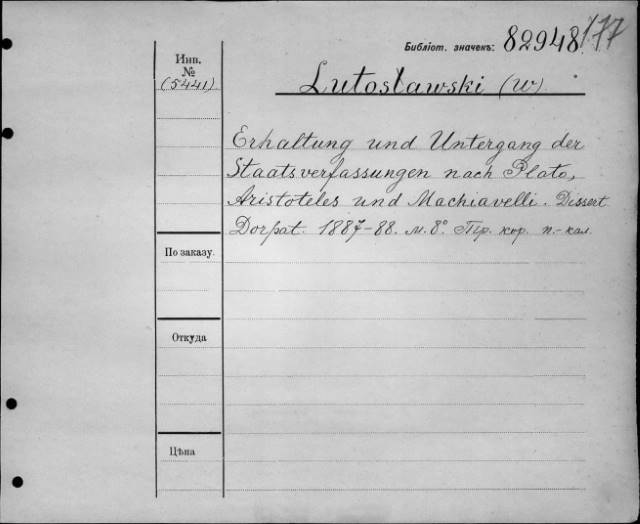 Библіот. значекъ: 82948/177
Инв.
№
(5441)
Lutosławski (W).
Erhaltung und Untergang der
Staatsverfassungen nach Plato,
Aristoteles und Machiavelli. Dissert
Dorpat. 1887-88. м. 8º. Пер. кор. п.-кал.
По заказу.
Откуда
Цѣна